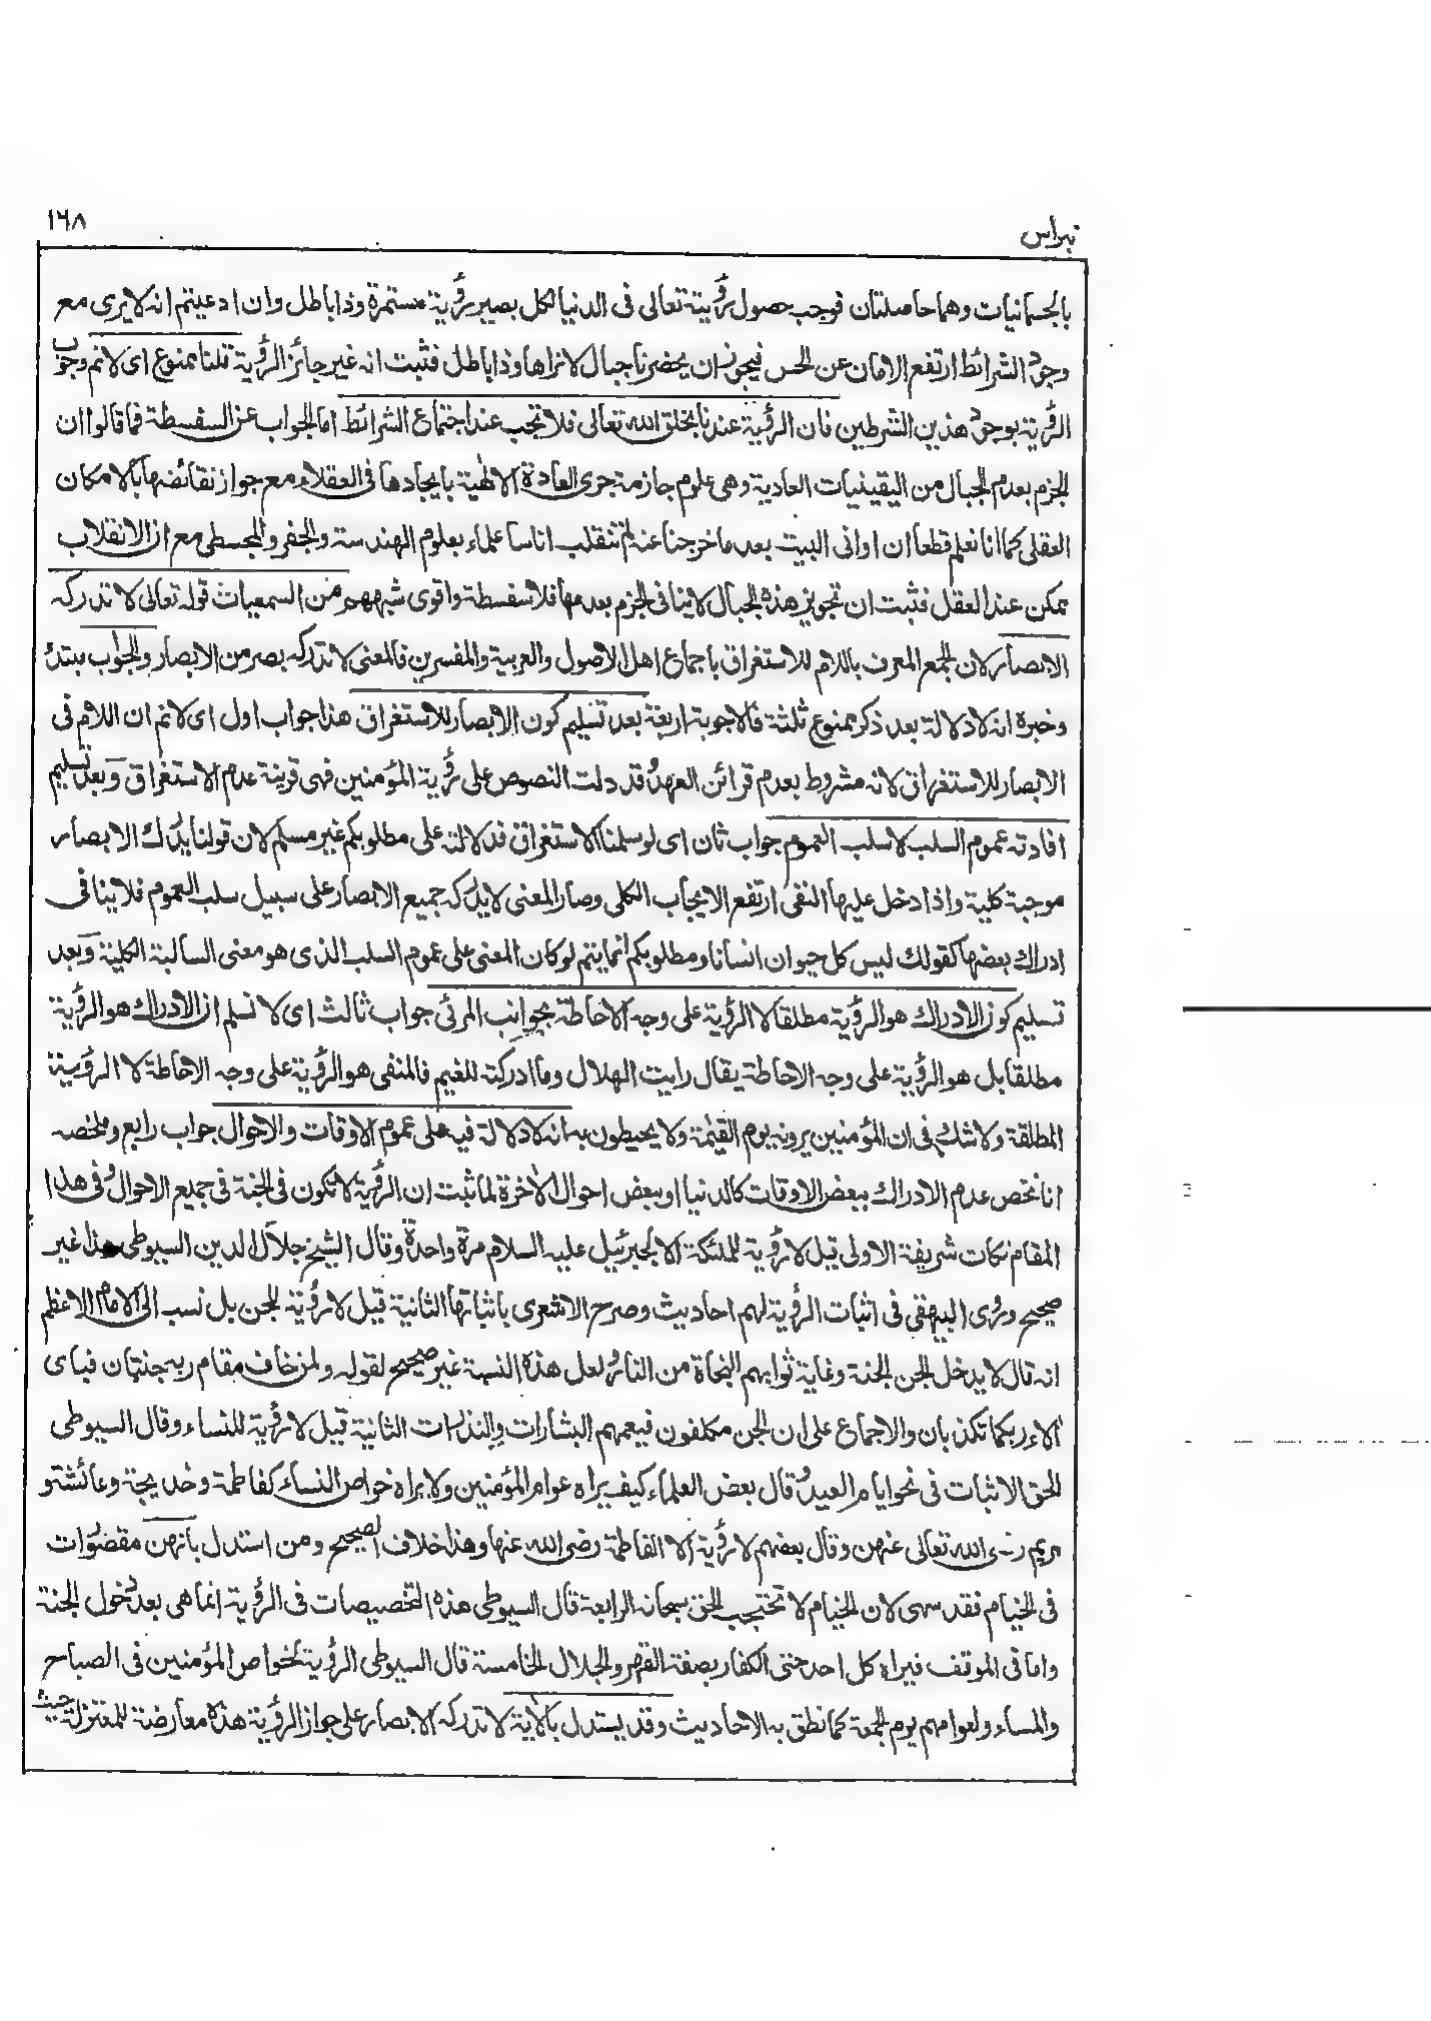 نبراس
١٦٨
بالجسمانيات وهما حاصلتان فوجب حصول رؤيته تعالى فى الدنيا لكل بصير رؤية مستمرة وذا باطل وان ادعيتم انه لا يرى مع
وجود الشرائط ارتفع الامان عن الحس فيجوز ان يحضرنا جبال لا نراها وذا باطل فثبت انه غير جائز الرؤية قلنا ممنوع اى لا نم وجوب
الرؤية بوجود هذين الشرطين فان الرؤية عندنا بخلق الله تعالى فلا تجب عند اجتماع الشرائط اما الجواب عن السفسطة فما قالوا ان
الجزم بعدم الجبال من اليقينيات العادية وهى علوم جازمة جرى العادة الالٰهية بايجادها فى العقلاء مع جواز نقائضها بالامكان
العقلى كما انا نعلم قطعا ان اوانى البيت بعد ما خرجنا عنه لم تنقلب اناسا علماء بعلوم الهندسة والجفر والمجسطى مع ان الانقلاب
ممكن عند العقل فثبت ان تجويز هذه الجبال لا ينافى الجزم بعدمها فلا سفسطة واقوى شبههم من السمعيات قوله تعالى لا تدركه
الابصار لان الجمع المعرف باللام للاستغراق باجماع اهل الاصول والعربية والمفسرين فالمعنى لا تدركه بصر من الابصار والجواب مبتدئ
وخبره انه لا دلالة بعد ذكر ممنوع ثلثة فالاجوبة اربعة بعد تسليم كون الابصار للاستغراق هذا جواب اول اى لا نم ان اللام فى
الابصار للاستغراق لانه مشروط بعدم قرائن العهد وقد دلت النصوص على رؤية المؤمنين فهى قرينة عدم الاستغراق وبعد تسليم
افادته عموم السلب لا سلب العموم جواب ثان اى لو سلمنا الاستغراق فدلالته على مطلوبكم غير مسلم لان قولنا يدرك الابصار
موجبة كلية واذا دخل عليها النفى ارتفع الايجاب الكلى وصار المعنى لا يدركه جميع الابصار على سبيل سلب العموم فلا ينافى
ادراك بعضها كقولك ليس كل حيوان انسانا ومطلوبكم انما يتم لو كان المعنى على عموم السلب الذى هو معنى السالبة الكلية وبعد
تسليم كون الادراك هو الرؤية مطلقا لا الرؤية على وجه الاحاطة بجوانب المرئى جواب ثالث اى لا نسلم ان الادراك هو الرؤية
مطلقا بل هو الرؤية على وجه الاحاطة يقال رايت الهلال وما ادركته للغيم فالمنفى هو الرؤية على وجه الاحاطة لا الرؤية
المطلقة ولا شك فى ان المؤمنين يرونه يوم القيٰمة ولا يحيطون به انه لا دلالة فيه على عموم الاوقات والاحوال جواب رابع وملخصه
انا نخص عدم الادراك ببعض الاوقات كالدنيا او ببعض احوال الاٰخرة لما ثبت ان الرؤية لا تكون فى الجنة فى جميع الاحوال وفى هذا
المقام نكات شريفة الاولى قيل لا رؤية للملئكة الا لجبرئيل عليه السلام مرة واحدة وقال الشيخ جلال الدين السيوطى هذا غير
صحيح وروى البيهقى فى اثبات الرؤية لهم احاديث وصرح الاشعرى باثباتها الثانية قيل لا رؤية للجن بل نسب الى الامام الاعظم
انه قال لا يدخل الجن الجنة وغاية ثوابهم النجاة من النار ولعل هذه النسبة غير صحيح لقوله ولمن خاف مقام ربه جنتٰن فباى
اٰلاء ربكما تكذبان والاجماع على ان الجن مكلفون فيعمهم البشارات والنذرات الثانية قيل لا رؤية للنساء وقال السيوطى
الحق الاثبات فى نحو ايام العيد وقال بعض العلماء كيف يراه عوام المؤمنين ولا يراه خواص النساء كفاطمة وخديجة وعائشة و
مريم رضى الله تعالى عنهن وقال بعضهم لا رؤية الا لفاطمة رضى الله عنها وهذا خلاف الصحيح ومن استدل بانهن مقصورات
فى الخيام فقد سهى لان الخيام لا تحتجب الحق سبحانه الرابعة قال السيوطى هذه التخصيصات فى الرؤية انما هى بعد دخول الجنة
واما فى الموقف فيراه كل احد حتى الكفار بصفة القهر والجلال الخامسة قال السيوطى الرؤية لخواص المؤمنين فى الصباح
والمساء ولعوامهم يوم الجمعة كما نطق به الاحاديث وقد يستدل بالاٰية لا تدركه الابصار على جواز الرؤية هذه معارضة للمعتزلة حيث